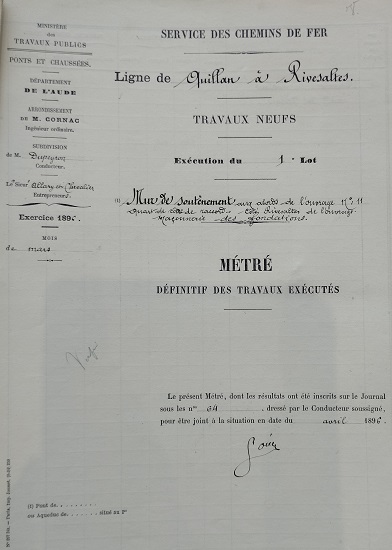 MINISTÈRE
des
TRAVAUX PUBLICS
PONTS ET CHAUSSÉES.
DÉPARTEMENT
DE L'AUDE
ARRONDISSEMENT
DE M. CORNAC
Ingénieur ordinaire.
SUBDIVISION
de M. Dupeyron
Conducteur.
Le Sieur Allary
Entrepreneur
Exercice 1896.
MOIS
de mars
SERVICE DES CHEMINS DE FER
Ligne de Quillan à Rivesaltes.
TRAVAUX NEUFS
Exécution du 1er Lot
(1) Mur de soutènement aux abords de l'ouvrage N° 11
côté Rivesaltes de l'ouvrage
Maçonnerie des fondations.
MÉTRÉ
DÉFINITIF DES TRAVAUX EXÉCUTÉS
Le présent Métré, dont les résultats ont été inscrits sur le Journal
sous les nos 64 , dressé par le Conducteur soussigné,
pour être joint à la situation en date du avril 1896.
(1) Pont de. . . . . . . .
ou Aqueduc de. . . . . . . . situé au Pt